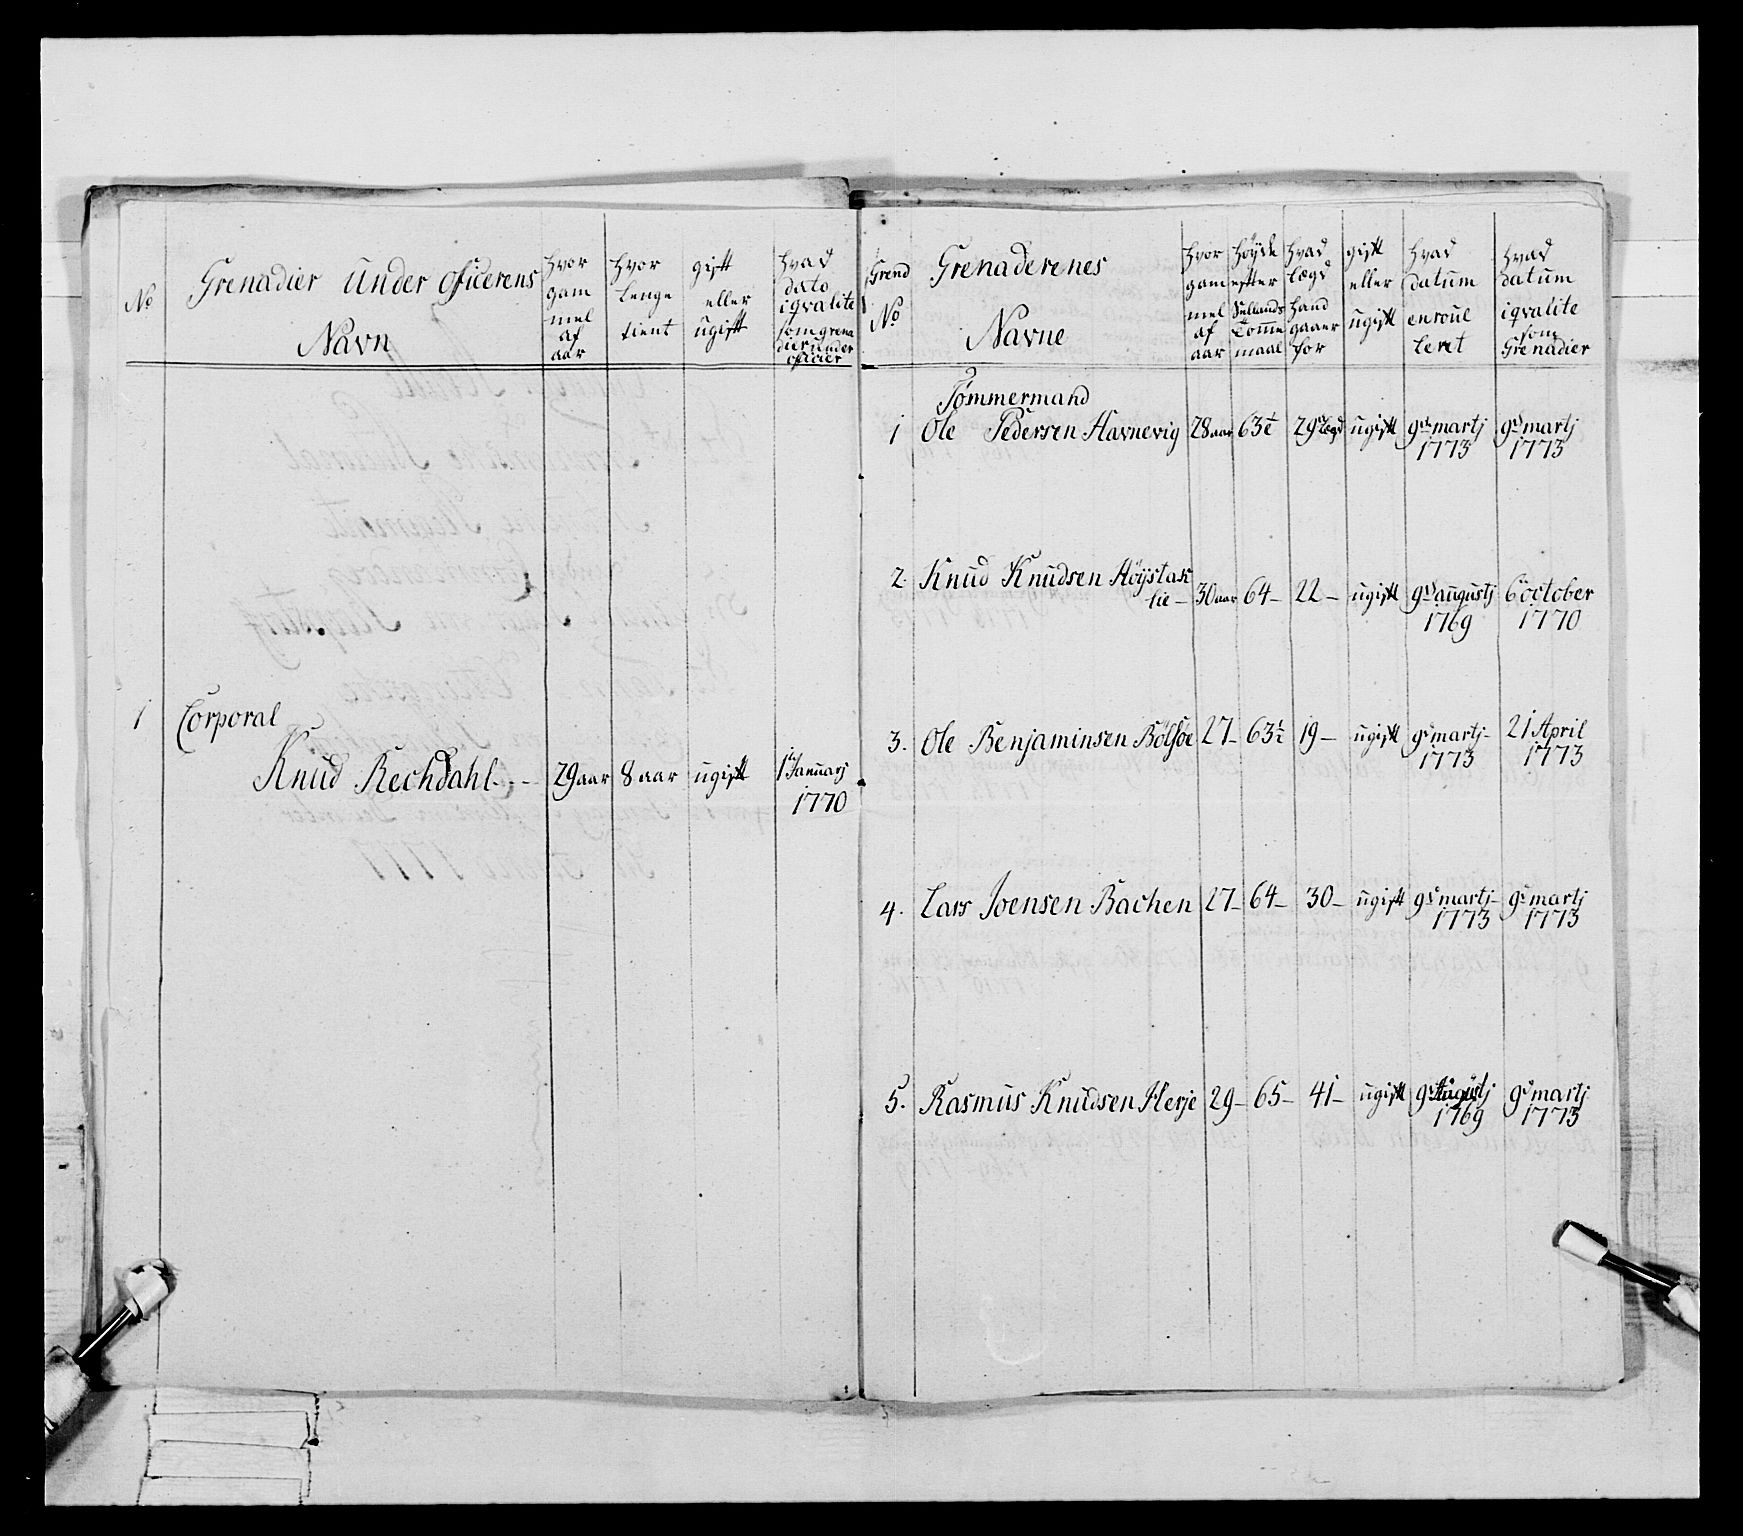 No
Grenadier Under Officerens
Navn
hvor gam mel af aar
hvor lenge tient
gift eller ugift
hvad dato iqvalite som grena dier under officer
1 Corporal
Knud Rechdahl 29 aar 8 aar ugift 1te Januarj
1770
Grend No
Grenaderenes
Navne
hvor gam mel af aar
høyde efter Sellands Tomme maal
hvad lægd hand gaaer for
gift eller ugift
hvad datum enroul leret
hvad datum iqvalite som Grenadier
Tømmermand
1 Ole Pedersen Havnevig 28 aar 63½ 29 Lægd ugift 9de martj 9d martj
1773 1773
2. Knud Knudsen Høystak
lie - 30 aar 64 - 22 - ugift 9d augustj 6te october
1769 1770
3. Ole Benjaminsen Bølsøe 27 - 63½ 19 - ugift 9d martj - 21 April
1773 1773
4. Lars Joensen Bachen 27 - 64 - 30 - ugift 9d martj - 9d martj
1773 1773
5. Rasmus Knudsen Herje 29 - 65 - 41 - ugift 9d Augustj 9d martj
1769 1773